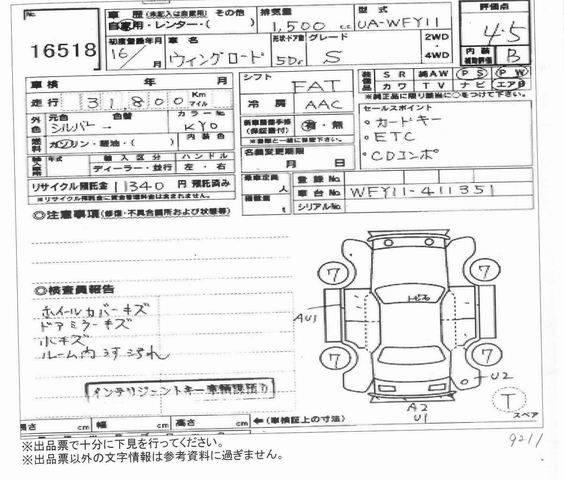 No.
16518
車歴 (未記入は自家用) その他
自家用・レンター・( )
排気量
1,500 cc
型式
UA-WFY11
評価点
4.5
初度登録年月
16 / 月
車名
ウィングロード
形状・ドア数
5Dr
グレード
S
2WD
・
4WD
内装
補助評価
B
車検 年 月
シフト
FAT
装備品
SR 純AW PS PW
カワ TV ナビ エアB
※純正品に限り該当に○をつけて下さい。
走行 31,800 Km マイル
冷房
AAC
セールスポイント
・カードキー
・ETC
・CDコンポ
外色
元色 シルバー
色替 →
カラーNo. KY0
内装色
新車整備手帳
(保証書付)
有・無
※書類と一緒に保管下さい
燃料
ガソリン・軽油・( )
名義変更期限
月 日
輸入車
年式
輸入区分
ディーラー・並行
ハンドル
左・右
リサイクル預託金 11340 円 預託済み
※リサイクル預託金に資金管理料金は含まれません。
乗車定員 人
積載量 t
登録No.
車台No. WFY11-411351
シリアルNo.
◎注意事項(修復・不具合箇所および状態等)
◎検査員報告
ホイールカバーキズ
ドアミラーキズ
小キズ
ルーム内コゲ汚れ
インテリジェントキー車輌課預り
7
7
7
7
AU1
U2
A2
U1
T
スペア
長さ cm 幅 cm 高さ cm ←(車検証上の寸法)
9211
※出品票で十分に下見を行ってください。
※出品票以外の文字情報は参考資料に過ぎません。